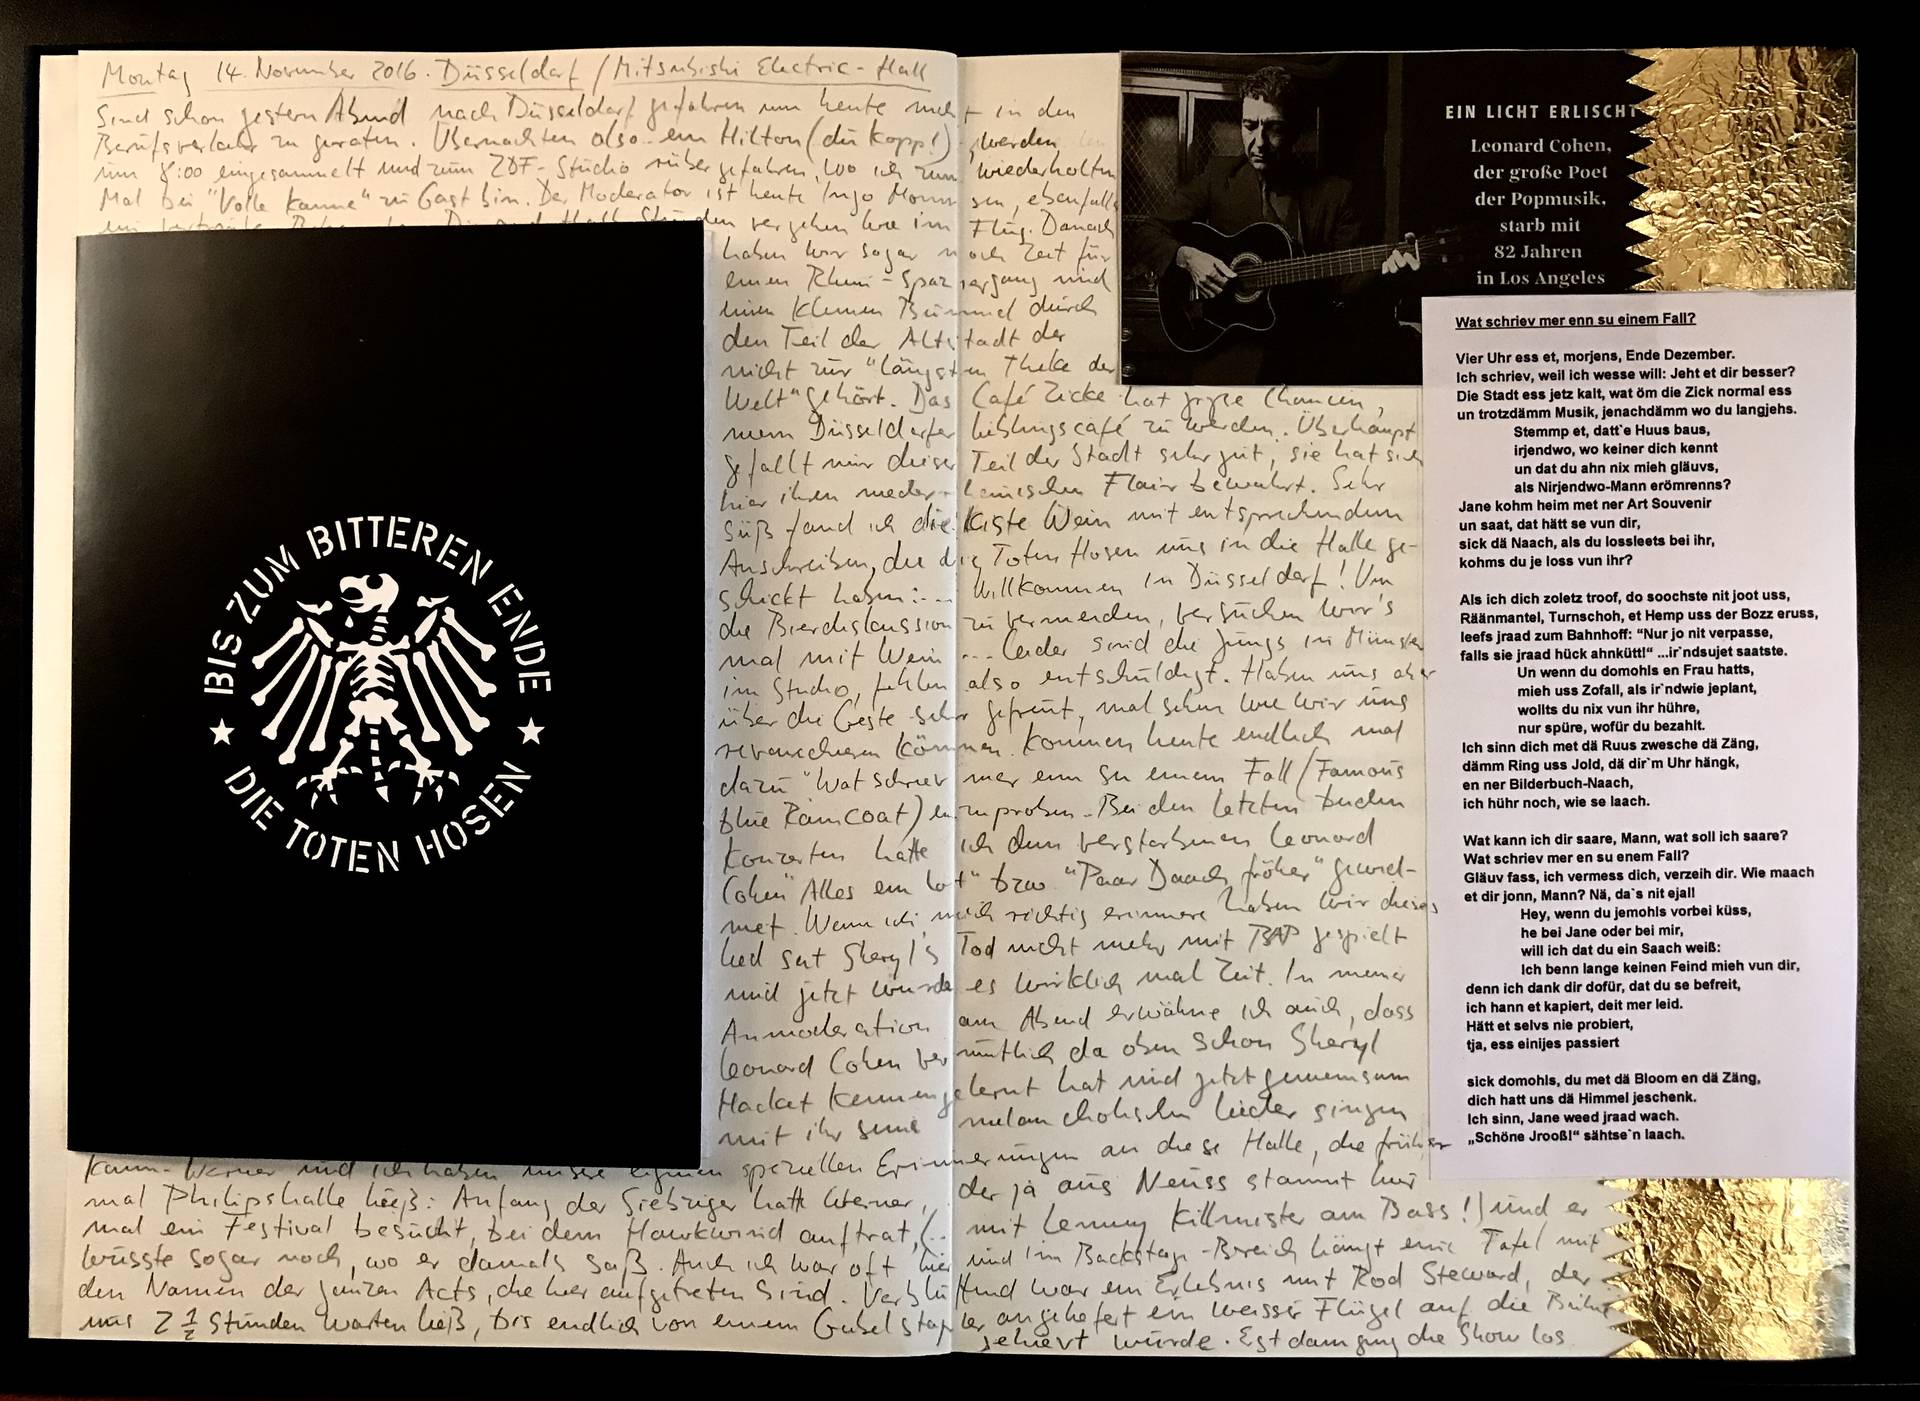 Montag 14. November 2016. Düsseldorf / Mitsubishi Electric-Hall
Sind schon gestern Abend nach Düsseldorf gefahren um heute nicht in den
Berufsverkehr zu geraten. Übernachten also im Hilton (di Kopp!), werden
um 8:00 eingesammelt und zum ZDF-Studio rüber gefahren, wo ich zum wiederholten
Mal bei "Volle Kanne" zu Gast bin. Der Moderator ist heute Ingo Nommsen, ebenfalls
Stunden vergehen wie im Flug. Danach
haben wir sogar noch Zeit für
einen Rhein-Spaziergang und
einen kleinen Bummel durch
den Teil der Altstadt der
nicht zur "längsten Theke der
Welt" gehört. Das Café Zicke hat große Chancen,
mein Düsseldorfer Lieblingscafé zu werden. Überhaupt
gefällt mir dieser Teil der Stadt sehr gut, sie hat sich
hier ihren niederrheinischen Flair bewahrt. Sehr
süß fand ich die Kiste Wein mit entsprechendem
Anschreiben, die die Toten Hosen uns in die Halle ge-
schickt haben: ... Willkommen in Düsseldorf! Um
die Bierdiskussion zu vermeiden, versuchen wir's
mal mit Wein ... Leider sind die Jungs in Münster
im Studio, fehlen also entschuldigt. Haben uns aber
über die Geste sehr gefreut, mal sehen wie wir uns
revanchieren können. Kommen heute endlich mal
dazu "Wat schriev mer enn su einem Fall / Famous
Blue Raincoat) einzuproben. Bei den letzten beiden
Konzerten hatte ich dem verstorbenen Leonard
Cohen "Alles em Lot" bzw. "Paar Daach fröher" gewid-
met. Wenn ich mich richtig erinnere haben wir dieses
Lied seit Sheryl's Tod nicht mehr mit BAP gespielt
und jetzt wurde es wirklich mal Zeit. In meiner
Anmoderation am Abend erwähne ich auch, dass
Leonard Cohen vermutlich da oben schon Sheryl
Hacket kennengelernt hat und jetzt gemeinsam
mit ihr seine melancholischen Lieder singen
kann. Werner und ich haben unsere eigenen speziellen Erinnerungen an diese Halle, die früher
mal Philipshalle hieß: Anfang der Siebziger hatte Werner, der ja aus Neuss stammt hier
mal ein Festival besucht, bei dem Hawkwind auftrat, (.. mit Lemmy Killmister am Bass!) und er
wusste sogar noch, wo er damals saß. Auch ich war oft hier und im Backstage-Bereich hängt eine Tafel mit
den Namen der ganzen Acts, die hier aufgetreten sind. Verblüffend war ein Erlebnis mit Rod Steward, der
uns 2 1/2 Stunden warten ließ, bis endlich von einem Gabelstapler angeliefert ein weisser Flügel auf die Bühne
gehievt wurde. Erst dann ging die Show los
BIS ZUM BITTEREN ENDE
DIE TOTEN HOSEN
EIN LICHT ERLISCHT
Leonard Cohen,
der große Poet
der Popmusik,
starb mit
82 Jahren
in Los Angeles
Wat schriev mer enn su einem Fall?
Vier Uhr ess et, morjens, Ende Dezember.
Ich schriev, weil ich wesse will: Jeht et dir besser?
Die Stadt ess jetz kalt, wat öm die Zick normal ess
un trotzdämm Musik, jenachdämm wo du langjehs.
Stemmp et, datt`e Huus baus,
irjendwo, wo keiner dich kennt
un dat du ahn nix mieh gläuvs,
als Nirjendwo-Mann erömrenns?
Jane kohm heim met ner Art Souvenir
un saat, dat hätt se vun dir,
sick dä Naach, als du lossleets bei ihr,
kohms du je loss vun ihr?
Als ich dich zoletz troof, do soochste nit joot uss,
Räänmantel, Turnschoh, et Hemp uss der Bozz eruss,
leefs jraad zum Bahnhoff: "Nur jo nit verpasse,
falls sie jraad hück ahnkütt!" ...ir`ndsujet saatste.
Un wenn du domohls en Frau hatts,
mieh uss Zofall, als ir`ndwie jeplant,
wollts du nix vun ihr hühre,
nur spüre, wofür du bezahlt.
Ich sinn dich met dä Ruus zwesche dä Zäng,
dämm Ring uss Jold, dä dir`m Uhr hängk,
en ner Bilderbuch-Naach,
ich hühr noch, wie se laach.
Wat kann ich dir saare, Mann, wat soll ich saare?
Wat schriev mer en su enem Fall?
Gläuv fass, ich vermess dich, verzeih dir. Wie maach
et dir jonn, Mann? Nä, da`s nit ejal!
Hey, wenn du jemohls vorbei küss,
he bei Jane oder bei mir,
will ich dat du ein Saach weiß:
Ich benn lange keinen Feind mieh vun dir,
denn ich dank dir dofür, dat du se befreit,
ich hann et kapiert, deit mer leid.
Hätt et selvs nie probiert,
tja, ess einijes passiert
sick domohls, du met dä Bloom en dä Zäng,
dich hatt uns dä Himmel jeschenk.
Ich sinn, Jane weed jraad wach.
„Schöne Jrooß!“ sähtse`n laach.